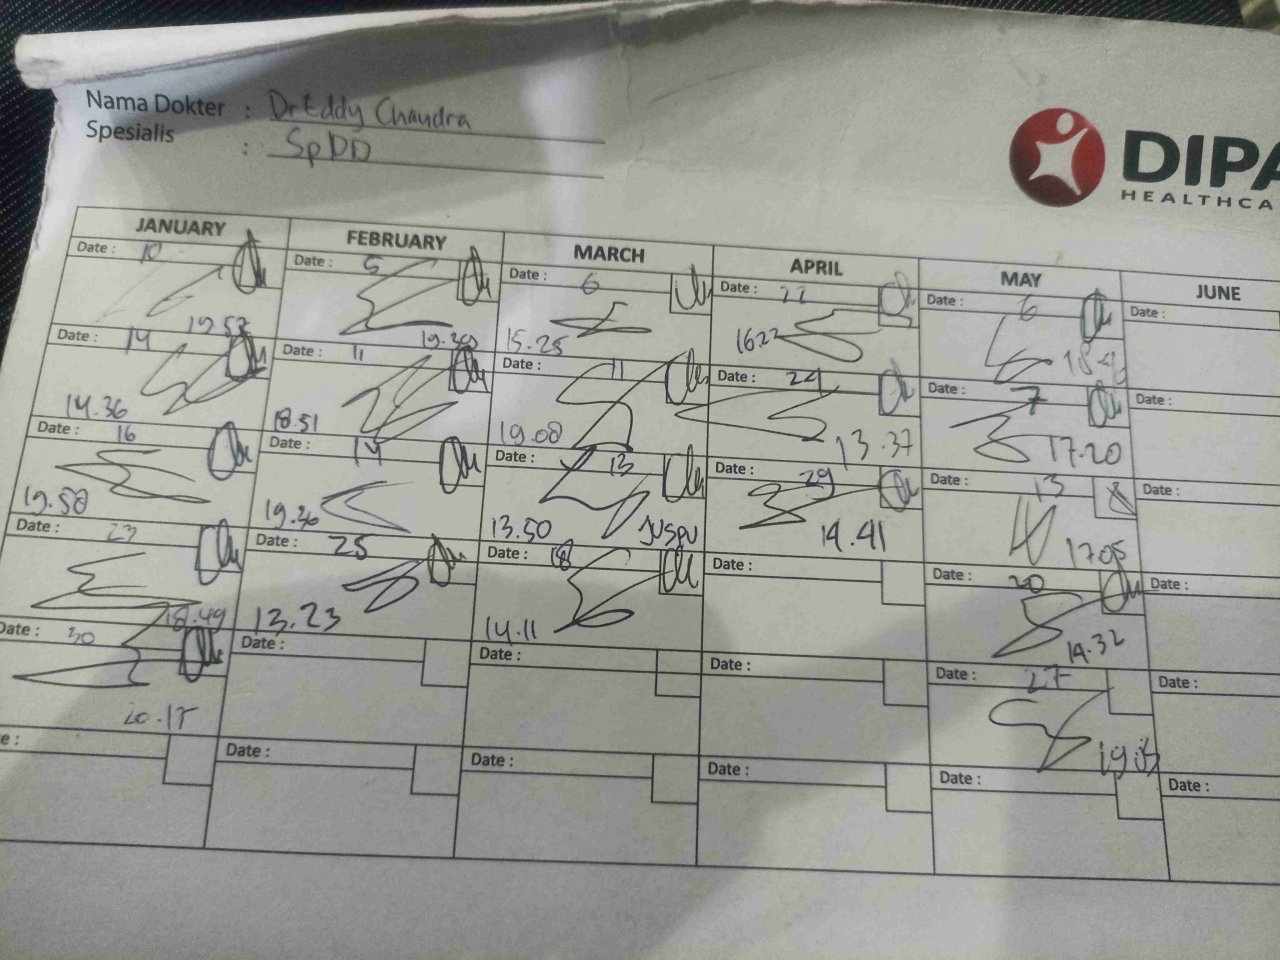 Nama Dokter : Dr Eddy Chandra
Spesialis : SpDD
DIPA
HEALTHCA
JANUARY FEBRUARY MARCH APRIL MAY JUNE
Date : 10 Date : 5 Date : 6 Date : 22 Date : 6 Date :
19.57 19.30 15.25 1622
Date : 14 Date : 11 Date : 11 Date : 24 Date : 7 Date :
14.36 18.51 19.08 13.37 17.20
Date : 16 Date : 14 Date : 13 Date : 29 Date : 13 Date :
19.58 19.36 13.50 14.41 1705
Date : 23 Date : 25 Date : 18 Date : Date : 20 Date :
18.49 13.23 14.11 14.32
Date : 30 Date : Date : Date : Date : 27 Date :
20.15
e : Date : Date : Date : Date : Date :